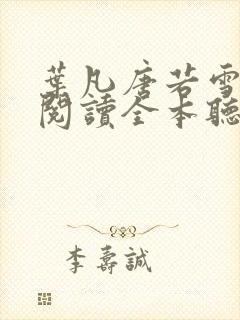 葉凡唐若雪
閱讀全本聽
李壽誠